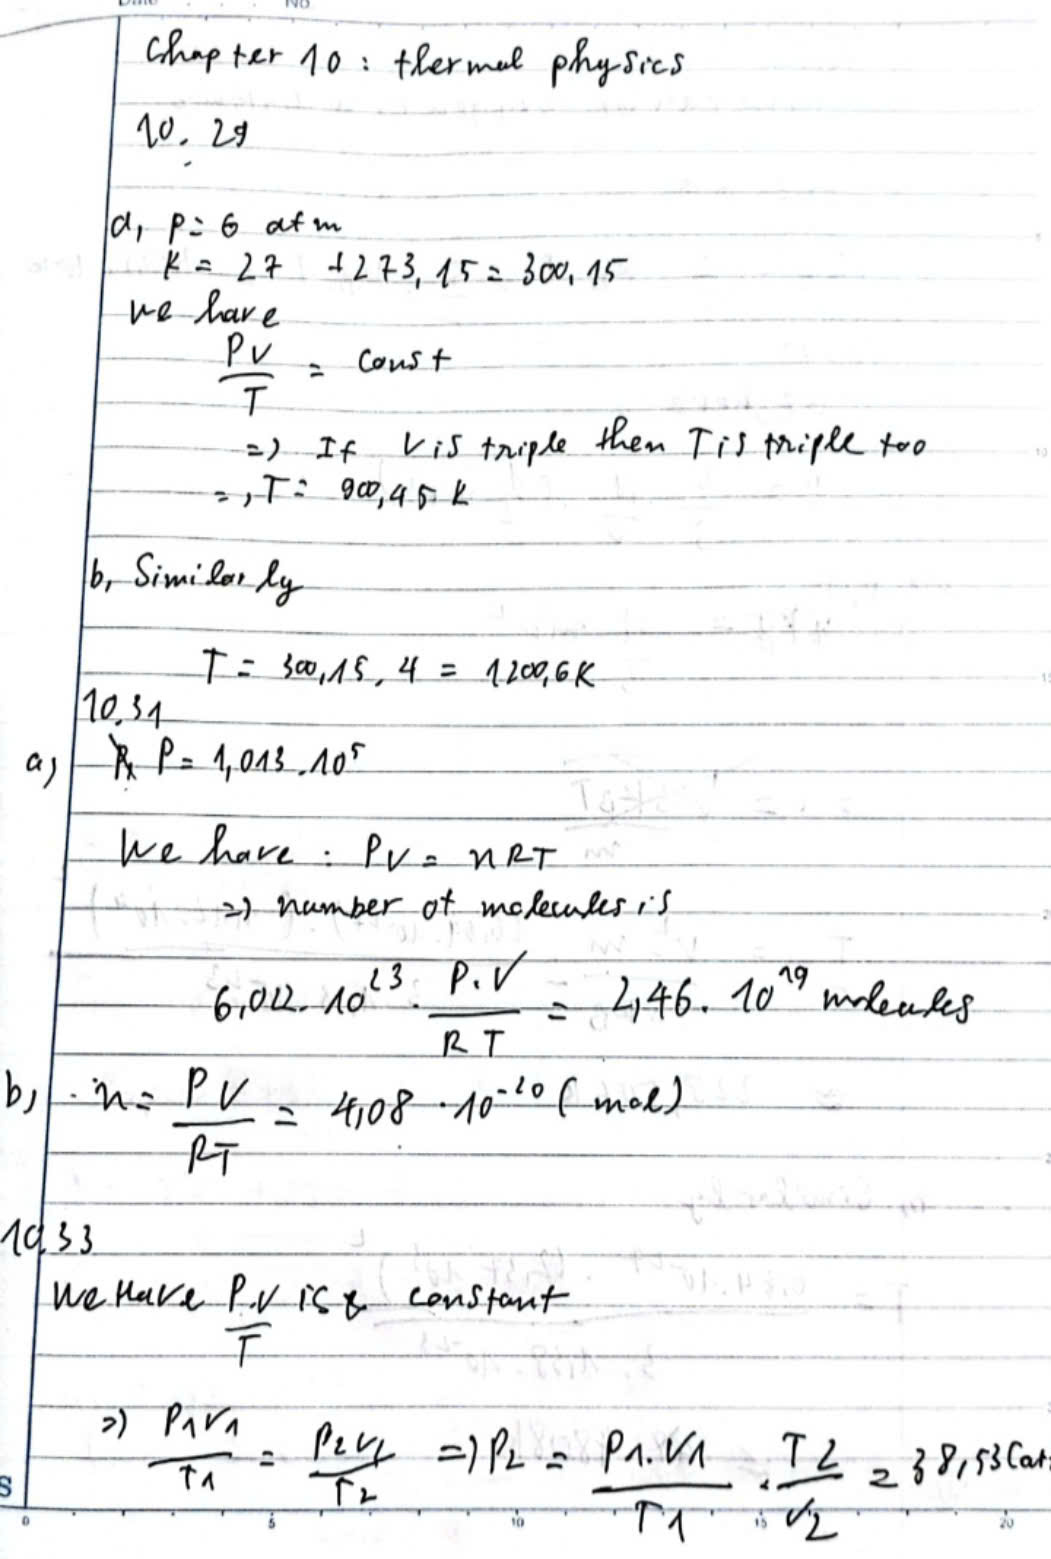 Date No
Chapter 10: thermal physics
10.29
a, P = 6 atm
K = 27 + 273,15 = 300,15
we have
PV/T = const
=> If V is triple then T is triple too
=, T = 900,45 K
b, Similarly
T = 300,15. 4 = 1200,6K
10.31
a, P = 1,013.10⁵
We have : PV = nRT
=> number of molecules is
6,022.10²³ . P.V/RT = 2,46. 10¹⁹ molecules
b, n = PV/RT = 4,08 . 10⁻²⁰ (mol)
10.33
We Have P.V/T is constant
=> P1V1/T1 = P2V2/T2 => P2 = P1.V1/T1 . T2/V2 = 38,53(at
S
0 5 10 15 20